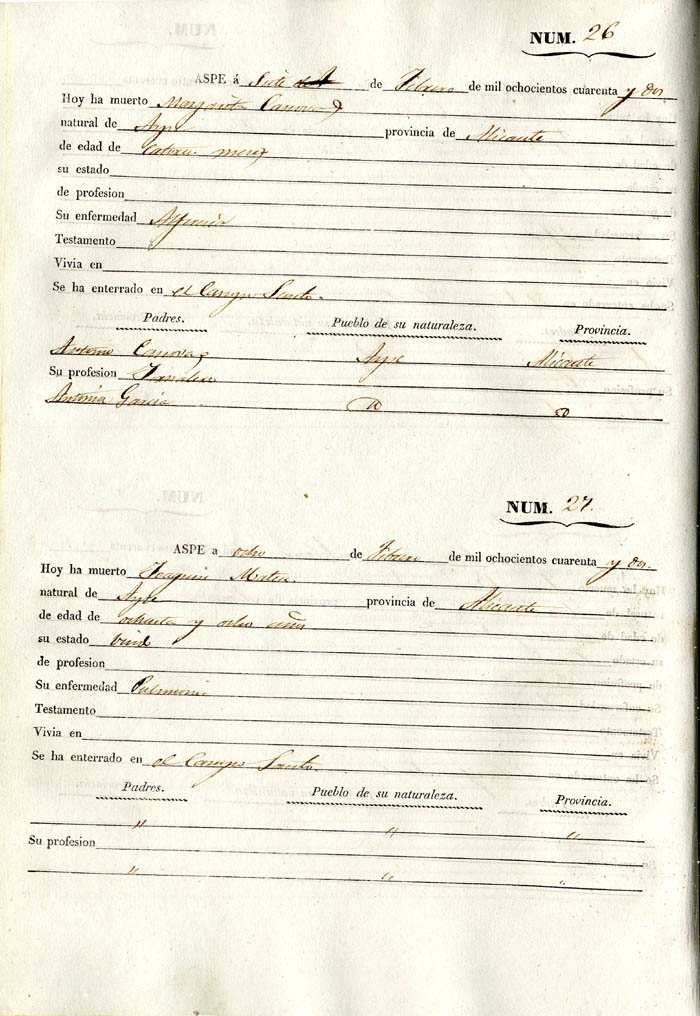 NUM. 26
ASPE á Siete de Febrero de mil ochocientos cuarenta y dos
Hoy ha muerto Margarita Canovas
natural de Aspe provincia de Alicante
de edad de Catorce meses
su estado
de profesion
Su enfermedad Alferecia
Testamento
Vivia en
Se ha enterrado en el Campo Santo.
Padres. Pueblo de su naturaleza. Provincia.
Antonio Canovas Aspe Alicante
Su profesion Jornalero
Antonia Garcia D D
NUM. 27.
ASPE a ocho de Febrero de mil ochocientos cuarenta y dos.
Hoy ha muerto Joaquin Mater
natural de Aspe provincia de Alicante
de edad de ochenta y ocho años
su estado
de profesion
Su enfermedad Pulmonia
Testamento
Vivia en
Se ha enterrado en el Campo Santo.
Padres. Pueblo de su naturaleza. Provincia.
" " "
Su profesion
" " "